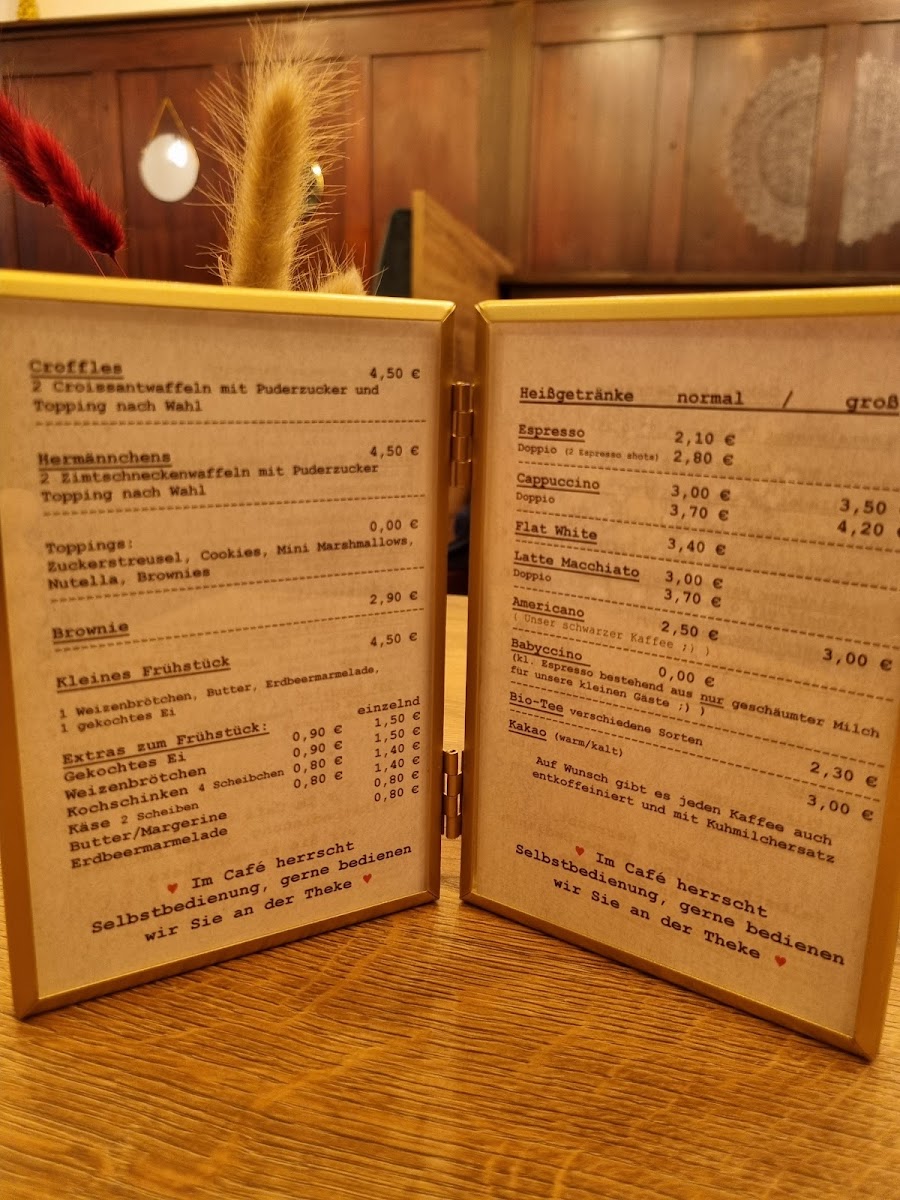 Croffles 4,50 €
2 Croissantwaffeln mit Puderzucker und
Topping nach Wahl
Hermännchens 4,50 €
2 Zimtschneckenwaffeln mit Puderzucker
Topping nach Wahl
0,00 €
Toppings:
Zuckerstreusel, Cookies, Mini Marshmallows,
Nutella, Brownies
2,90 €
Brownie
4,50 €
Kleines Frühstück
1 Weizenbrötchen, Butter, Erdbeermarmelade,
1 gekochtes Ei
einzelnd
Extras zum Frühstück:
Gekochtes Ei 0,90 € 1,50 €
Weizenbrötchen 0,90 € 1,50 €
Kochschinken 4 Scheibchen 0,80 € 1,40 €
Käse 2 Scheiben 0,80 € 1,40 €
Butter/Margerine 0,80 €
Erdbeermarmelade 0,80 €
♥ Im Café herrscht
Selbstbedienung, gerne bedienen
wir Sie an der Theke ♥
Heißgetränke normal / groß
Espresso 2,10 €
Doppio (2 Espresso shots) 2,80 €
Cappuccino 3,00 € 3,50
Doppio 3,70 € 4,20 €
Flat White 3,40 €
Latte Macchiato 3,00 €
Doppio 3,70 €
Americano 2,50 € 3,00 €
( Unser schwarzer Kaffee ;) )
Babyccino 0,00 €
(kl. Espresso bestehend aus nur geschäumter Milch
für unsere kleinen Gäste ;) )
Bio-Tee verschiedene Sorten 2,30 €
Kakao (warm/kalt) 3,00 €
Auf Wunsch gibt es jeden Kaffee auch
entkoffeiniert und mit Kuhmilchersatz
♥ Im Café herrscht
Selbstbedienung, gerne bedienen
wir Sie an der Theke ♥